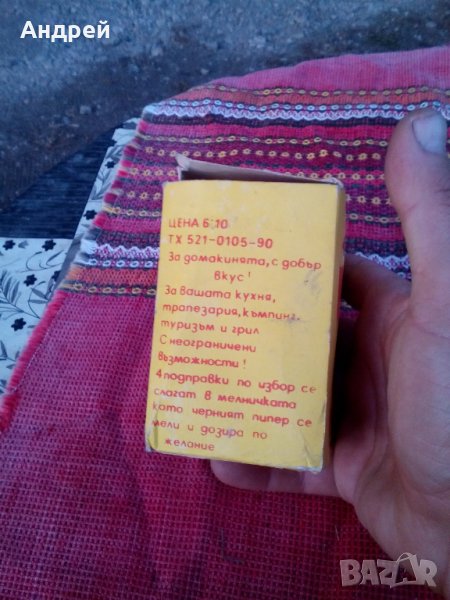 Андрей
ЦЕНА 6.10
ТХ 521-0105-90
За домакинята, с добър
вкус!
За вашата кухня,
трапезария, къмпинг,
туризъм и грил
С неограничени
възможности!
4 подправки по избор се
слагат в мелничката
като черният пипер се
мели и дозира по
желание
BAZAR